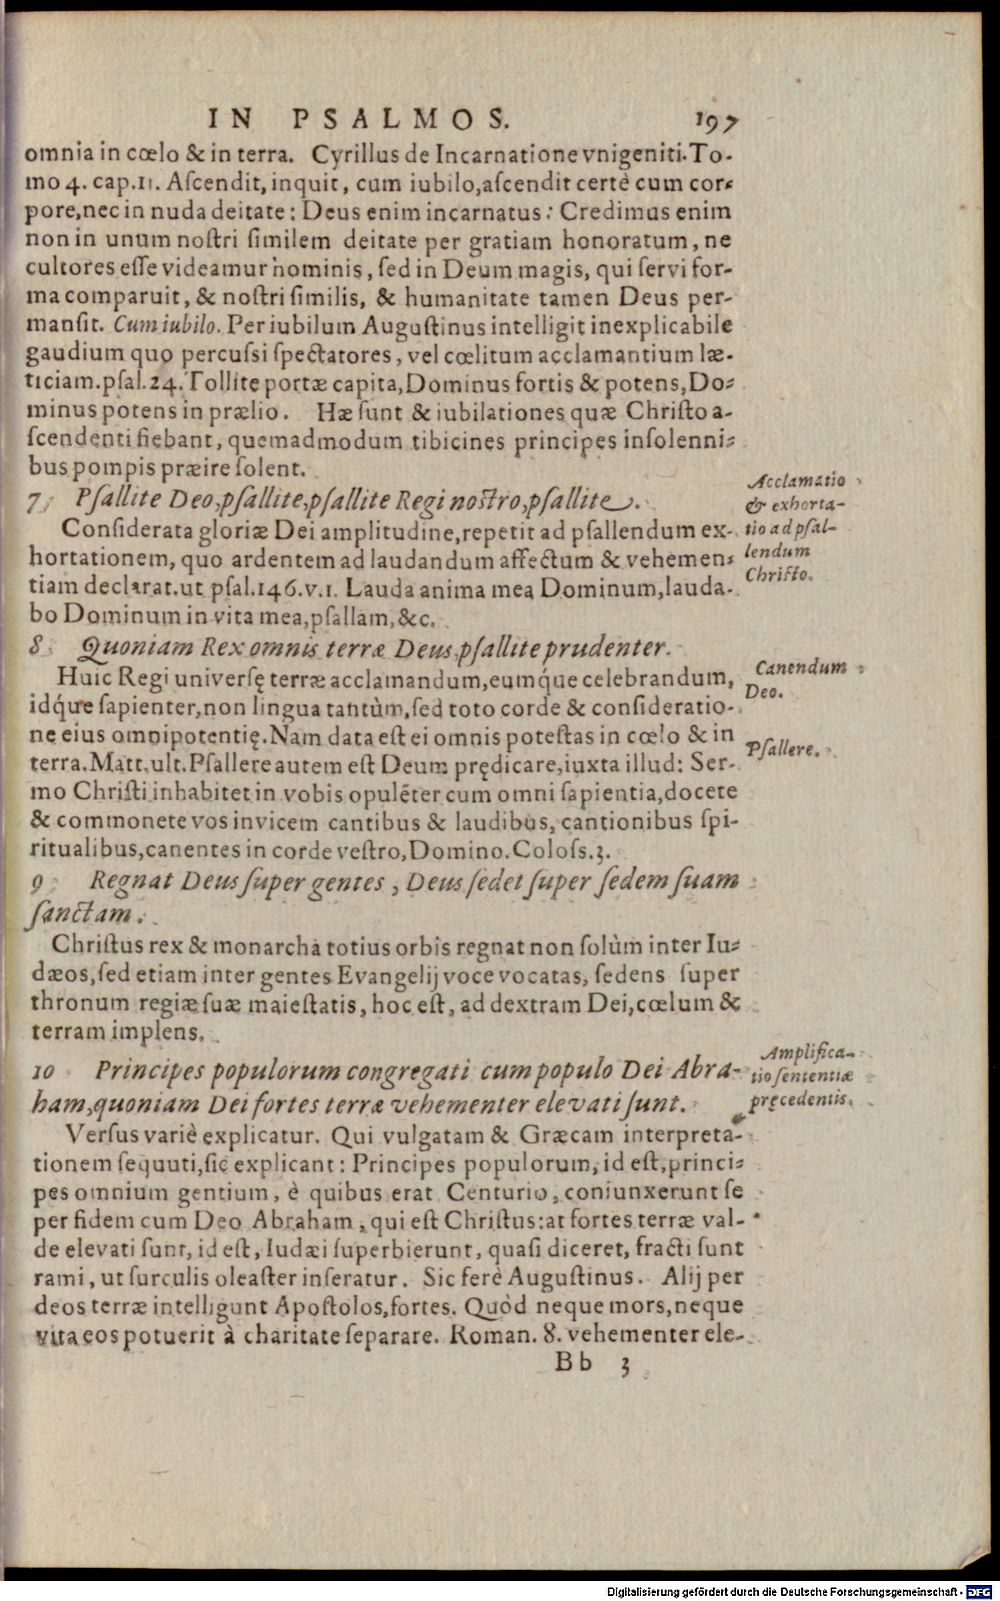 IN PSALMOS. 197
omnia in cœlo & in terra. Cyrillus de Incarnatione vnigeniti. To-
mo 4. cap. 11. Aſcendit, inquit, cum iubilo, aſcendit certè cum cor-
pore, nec in nuda deitate: Deus enim incarnatus: Credimus enim
non in unum noſtri ſimilem deitate per gratiam honoratum, ne
cultores eſſe videamur hominis, ſed in Deum magis, qui ſervi for-
ma comparuit, & noſtri ſimilis, & humanitate tamen Deus per-
manſit. Cum iubilo. Per iubilum Auguſtinus intelligit inexplicabile
gaudium quo percuſsi ſpectatores, vel cœlitum acclamantium læ-
ticiam. pſal. 24. Tollite portæ capita, Dominus fortis & potens, Do-
minus potens in prælio. Hæ ſunt & iubilationes quæ Chriſto a-
ſcendenti fiebant, quemadmodum tibicines principes in ſolenni-
bus pompis præire ſolent.
7 Pſallite Deo, pſallite, pſallite Regi noſtro, pſallite.
Acclamatio
& exhorta-
tio ad pſal-
lendum
Chriſto.
Conſiderata gloriæ Dei amplitudine, repetit ad pſallendum ex-
hortationem, quo ardentem ad laudandum affectum & vehemen-
tiam declarat. ut pſal. 146. v. 1. Lauda anima mea Dominum, lauda-
bo Dominum in vita mea, pſallam, &c.
8 Quoniam Rex omnis terræ Deus, pſallite prudenter.
Canendum
Deo.
Huic Regi universę terræ acclamandum, eumq́ue celebrandum,
idq́ue ſapienter, non lingua tantùm, ſed toto corde & conſideratio-
ne eius omnipotentię. Nam data eſt ei omnis poteſtas in cœlo & in
Pſallere.
terra. Matt. ult. Pſallere autem eſt Deum prędicare, iuxta illud: Ser-
mo Chriſti inhabitet in vobis opulẽter cum omni ſapientia, docete
& commonete vos invicem cantibus & laudibus, cantionibus ſpi-
ritualibus, canentes in corde veſtro, Domino. Coloſs. 3.
9 Regnat Deus ſuper gentes, Deus ſedet ſuper ſedem ſuam
ſanctam.
Chriſtus rex & monarcha totius orbis regnat non ſolùm inter Iu-
dæos, ſed etiam inter gentes Evangelij voce vocatas, ſedens ſuper
thronum regiæ ſuæ maieſtatis, hoc eſt, ad dextram Dei, cœlum &
terram implens.
10 Principes populorum congregati cum populo Dei Abra-
ham, quoniam Dei fortes terræ vehementer elevati ſunt.
Amplifica-
tio ſententiæ
pręcedentis.
Verſus variè explicatur. Qui vulgatam & Græcam interpreta-
tionem ſequuti, ſic explicant: Principes populorum, id eſt, princi-
pes omnium gentium, è quibus erat Centurio, coniunxerunt ſe
per fidem cum Deo Abraham, qui eſt Chriſtus: at fortes terræ val-
de elevati ſunt, id eſt, Iudæi ſuperbierunt, quaſi diceret, fracti ſunt
rami, ut ſurculis oleaſter inſeratur. Sic ferè Auguſtinus. Alij per
deos terræ intelligunt Apoſtolos, fortes. Quòd neque mors, neque
vita eos potuerit à charitate ſeparare. Roman. 8. vehementer ele-
Bb 3
Digitalisierung gefördert durch die Deutsche Forschungsgemeinschaft - DFG